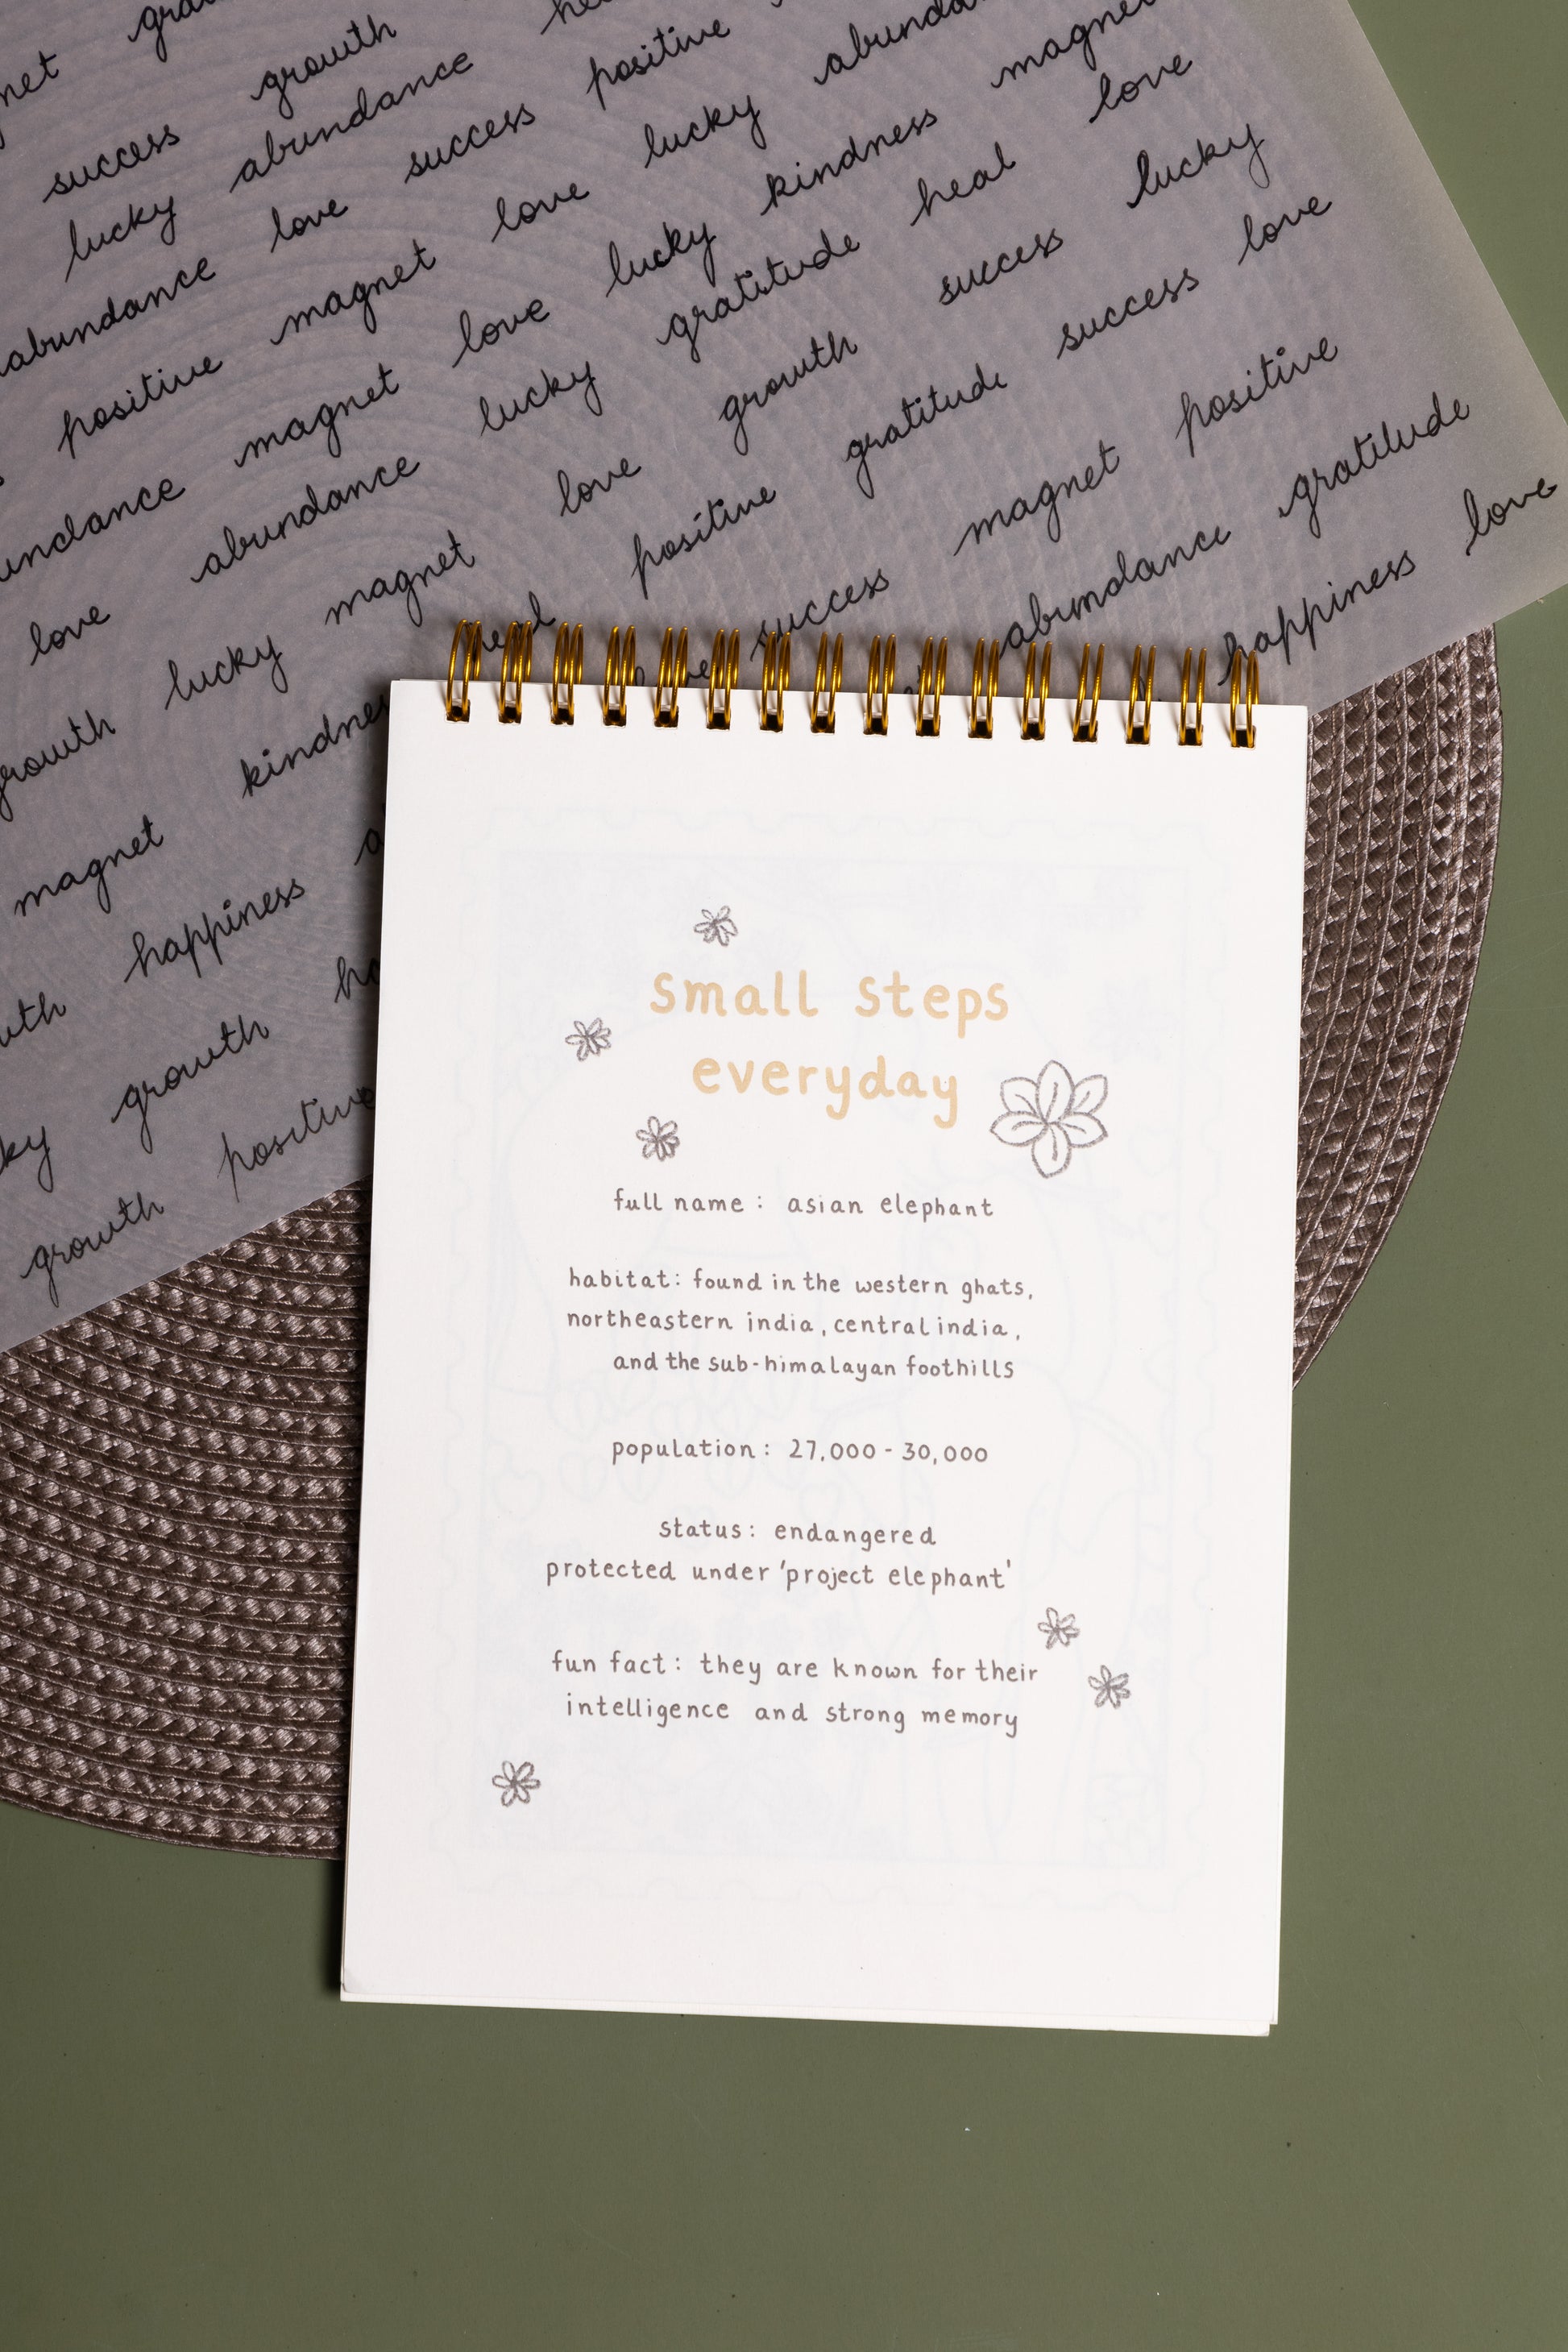 net gra
success growth
lucky abundance he
abundance love success positive
positive magnet love lucky abunda
undance magnet love lucky kindness magnet
love abundance lucky gratitude heal love
growth lucky magnet love growth success lucky
magnet kindness heal positive gratitude success love
uth happiness a success magnet positive
ky growth ha abundance gratitude
growth positive happiness love
small steps
everyday
full name : asian elephant
habitat: found in the western ghats,
northeastern india, central india,
and the sub-himalayan foothills
population : 27,000 - 30,000
status: endangered
protected under 'project elephant'
fun fact : they are known for their
intelligence and strong memory